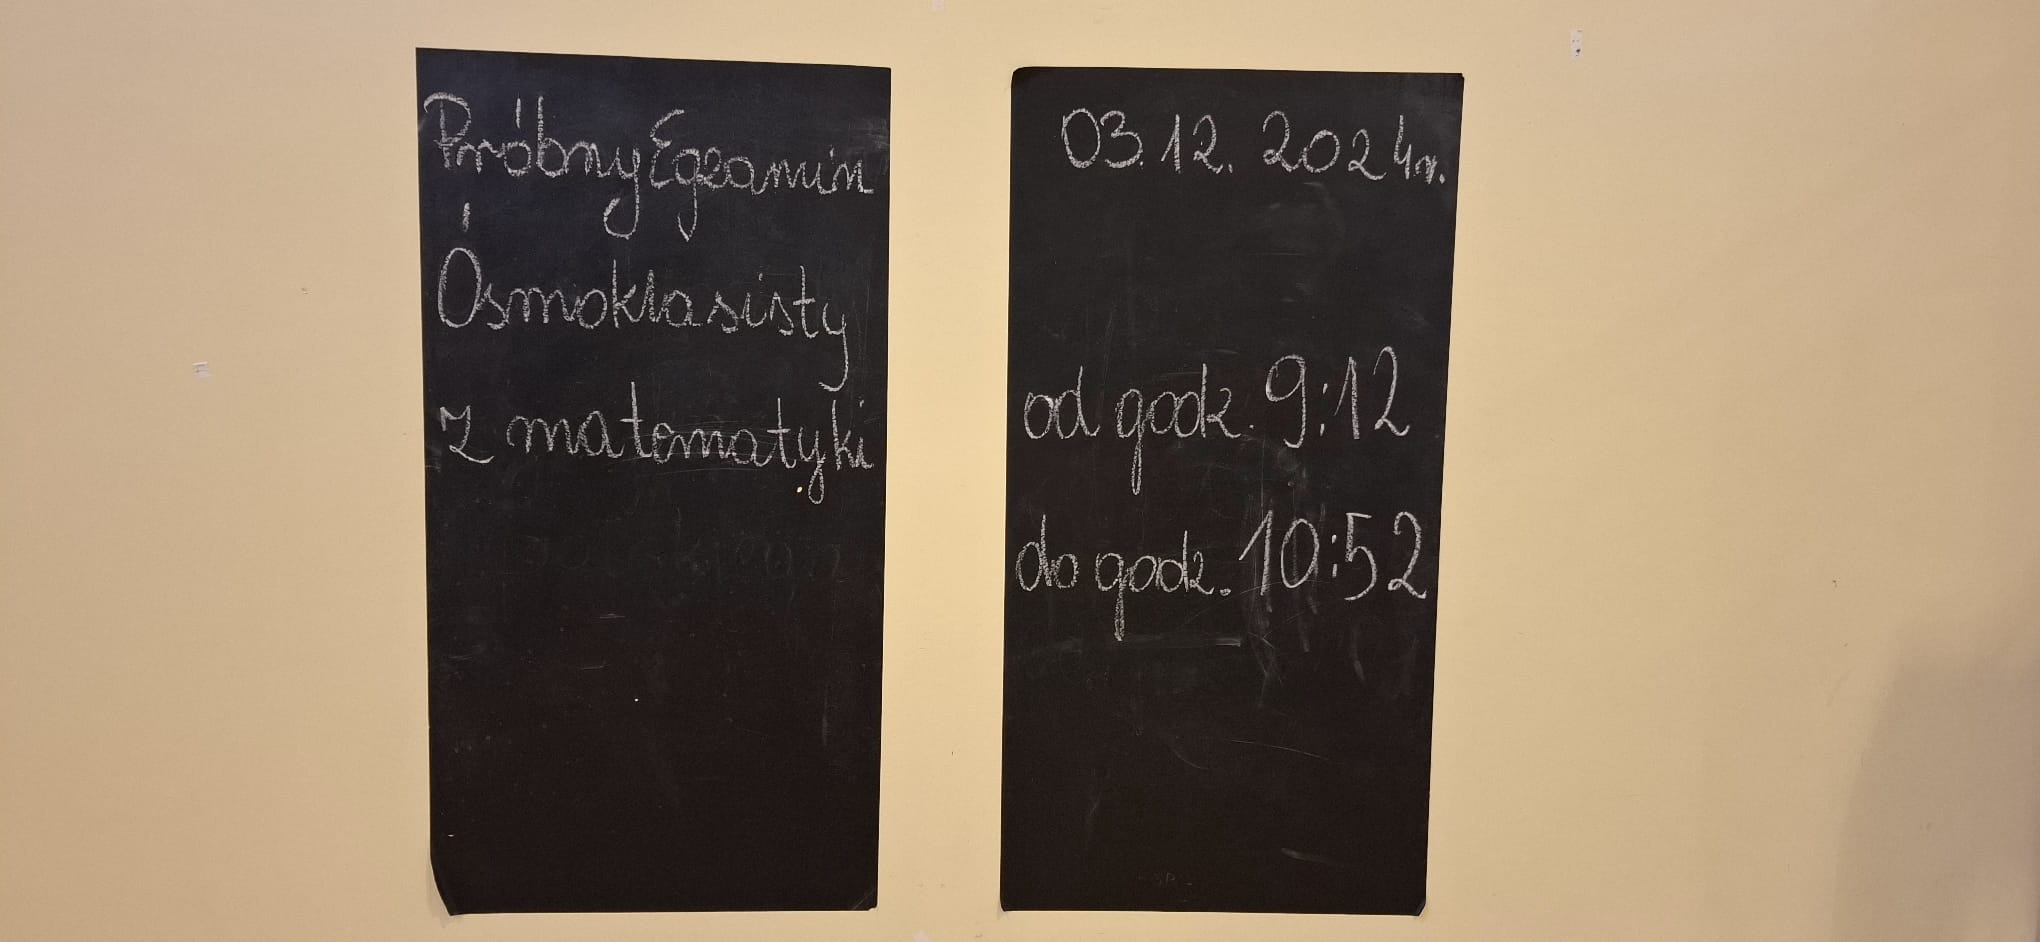 Próbny Egzamin
Ósmoklasisty
z matematyki
03.12.2024r.
od godz. 9:12
do godz. 10:52